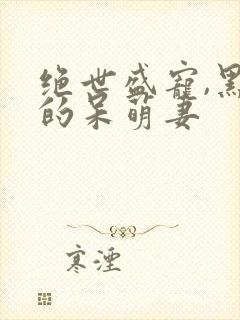 绝世盛宠,黑
的呆萌妻
寒湮